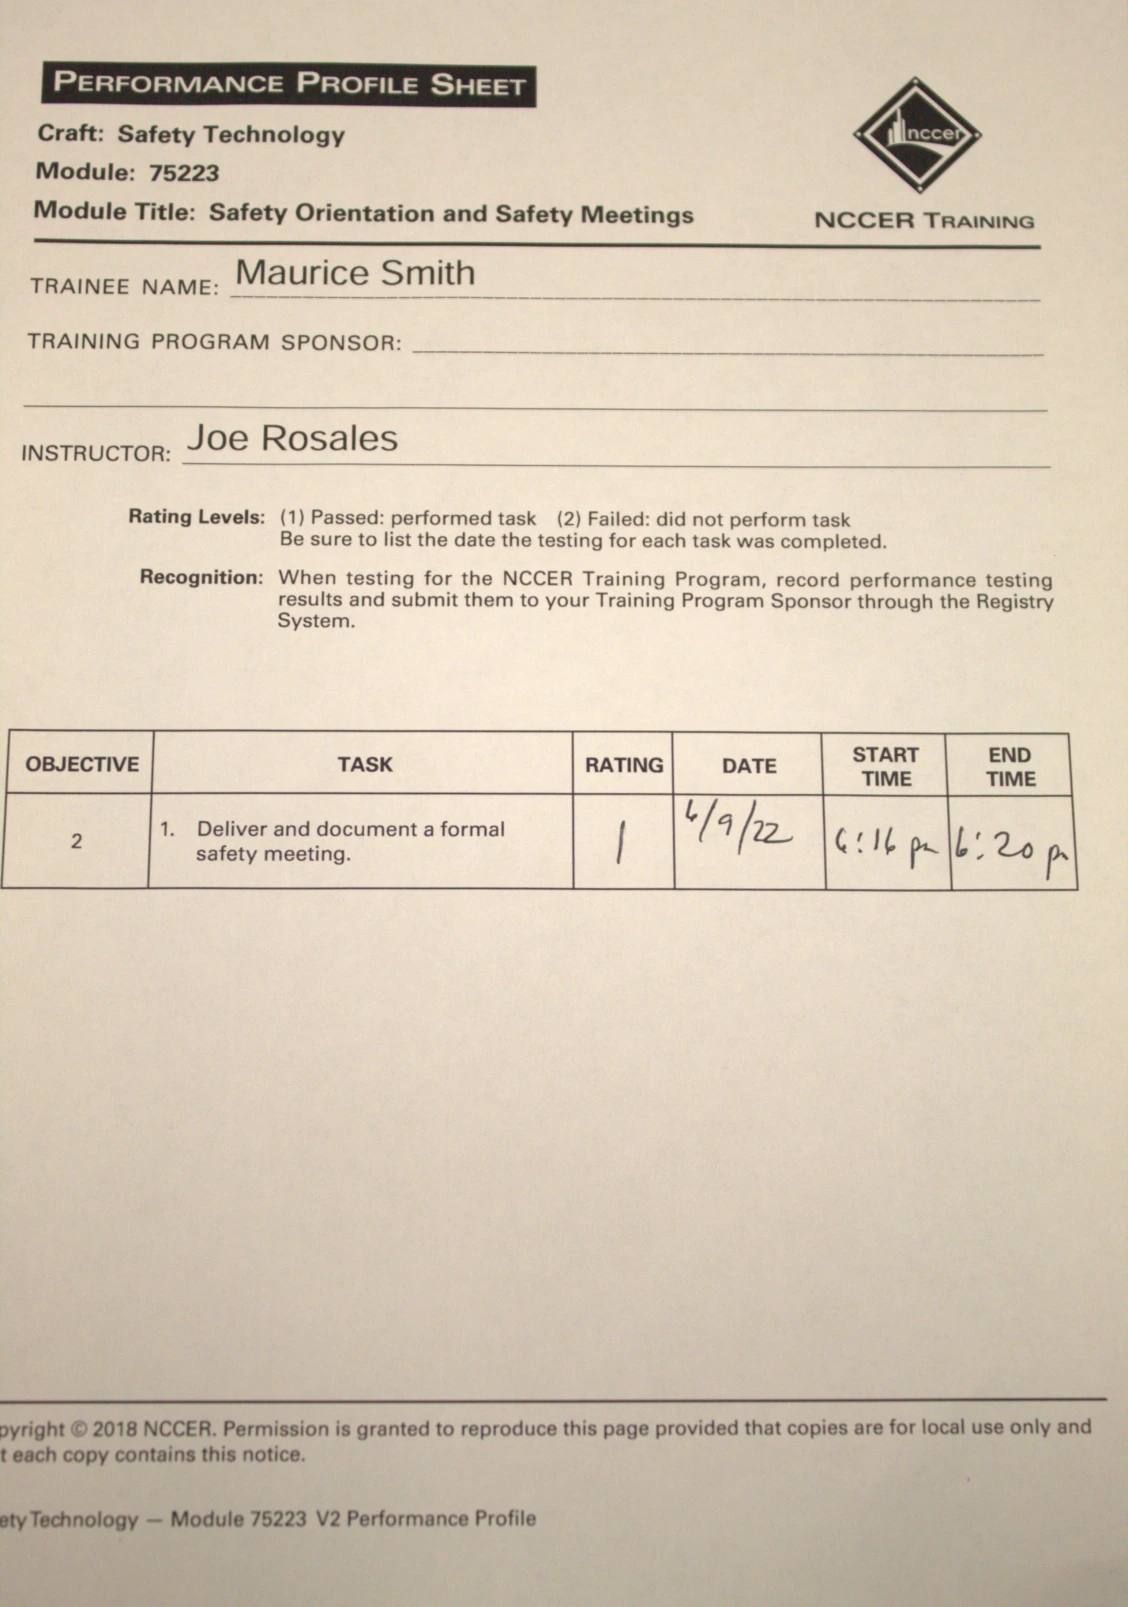 PERFORMANCE PROFILE SHEET
Craft: Safety Technology
Module: 75223
Module Title: Safety Orientation and Safety Meetings
nccer
NCCER TRAINING
TRAINEE NAME: Maurice Smith
TRAINING PROGRAM SPONSOR:
INSTRUCTOR: Joe Rosales
Rating Levels: (1) Passed: performed task (2) Failed: did not perform task
Be sure to list the date the testing for each task was completed.
Recognition: When testing for the NCCER Training Program, record performance testing
results and submit them to your Training Program Sponsor through the Registry
System.
OBJECTIVE TASK RATING DATE START TIME END TIME
2 1. Deliver and document a formal safety meeting. 1 6/9/22 6:16 pm 6:20 pm
pyright © 2018 NCCER. Permission is granted to reproduce this page provided that copies are for local use only and
t each copy contains this notice.
ety Technology — Module 75223 V2 Performance Profile